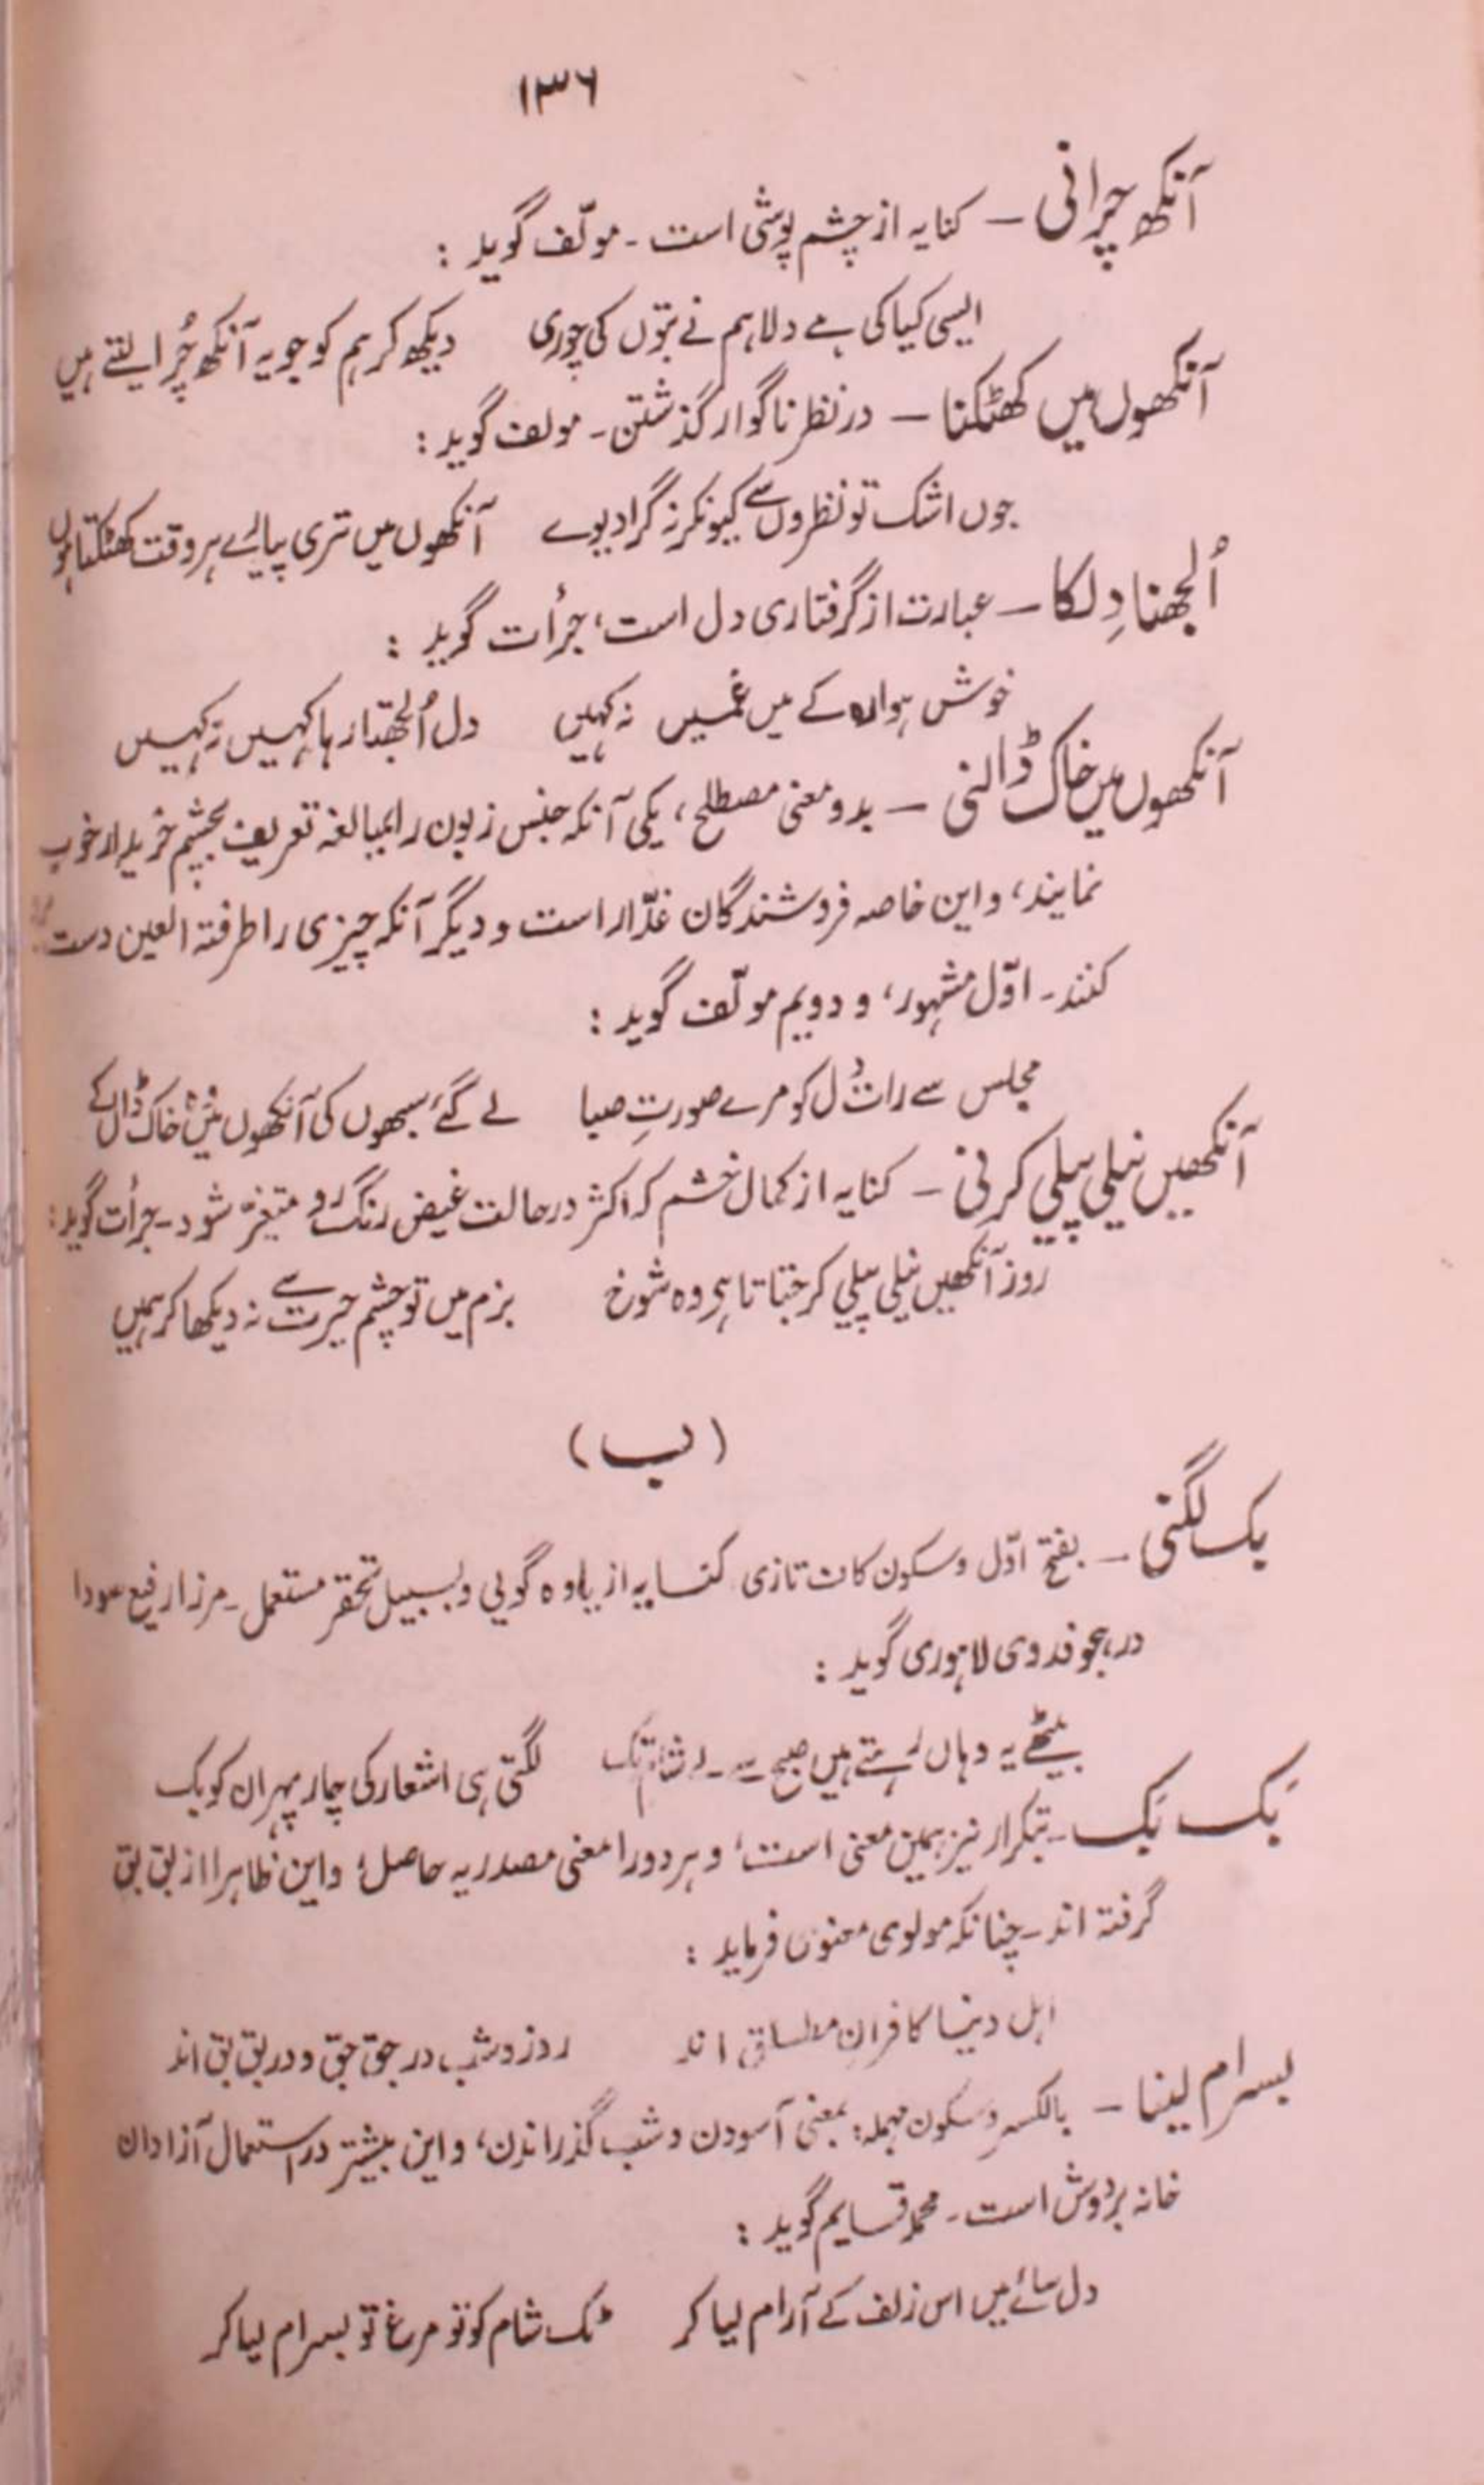 ۱۳۶
آنکھ چرانی — کنایہ از چشم پوشی است ۔ مولّف گوید :
ایسی کیا کی ہے دلا ہم نے بتوں کی چوری دیکھ کر ہم کو جو یہ آنکھ چُرا لیتے ہیں
آنکھوں میں کھٹکنا — در نظر ناگوار گذشتن ۔ مولف گوید :
جوں اشک تو نظروں سے کیونکر نہ گرا دیوے آنکھوں میں تری پیارے ہر وقت کھٹکتا ہوں
اُلجھنا دِل کا — عبارت از گرفتاری دل است، جرأت گوید :
خوش ہوا رہ کے میں غمیں نہ کہیں دل اُلجھتا رہا کہیں نہ کہیں
آنکھوں میں خاک ڈالنی — بدو معنی مصطلح، یکی آنکہ جنس زبون را بمبالغہ تعریف بچشم خریدار خوب
نمایند، و این خاصہ فروشندگان غدّار است و دیگر آنکہ چیزی را طرفتہ العین دست
کنند ۔ اوّل مشہور، و دویم مولّف گوید :
مجلس سے رات دل کو مرے صورتِ صبا لے گئے سبھوں کی آنکھوں میں وہ خاک ڈال کے
آنکھیں نیلی پیلی کرنی — کنایہ از کمال خشم کہ اکثر در حالت غیض رنگ رو متغیّر شود ۔ جرأت گوید :
روز آنکھیں نیلی پیلی کر جتاتا ہی وہ شوخ بزم میں تو چشم حیرت سے نہ دیکھا کر ہمیں
(ب)
بک لگنی — بفتح اوّل و سکون کاف تازی کنایہ از یاوہ گویی و بسبیل تحقر مستعمل ۔ مرزا رفیع سودا
در ہجو فدوی لاہوری گوید :
بیٹھے یہ وہاں رہتے ہیں صبح سے لے شام تک لگتی ہی اشعار کی چار پہر ان کو بک
بَک بَک — بتکرار نیز ہمین معنی است، و ہر دو را معنی مصدریہ حاصل؛ و این ظاہرا از بق بق
گرفتہ اند ۔ چنانکہ مولوی معنوی فرماید :
اہل دنیا کافرانِ مطلق اند روز و شب در جق جق و در بق بق اند
بسرام لینا — بالکسر و سکون مہملہ؛ بمعنی آسودن و شب گذراندن، و این بیشتر در استعمال آزادان
خانہ بردوش است ۔ محمد قایم گوید :
دل سائے میں اس زلف کے آرام لیا کر ٹک شام کو تو مرغ تو بسرام لیا کر